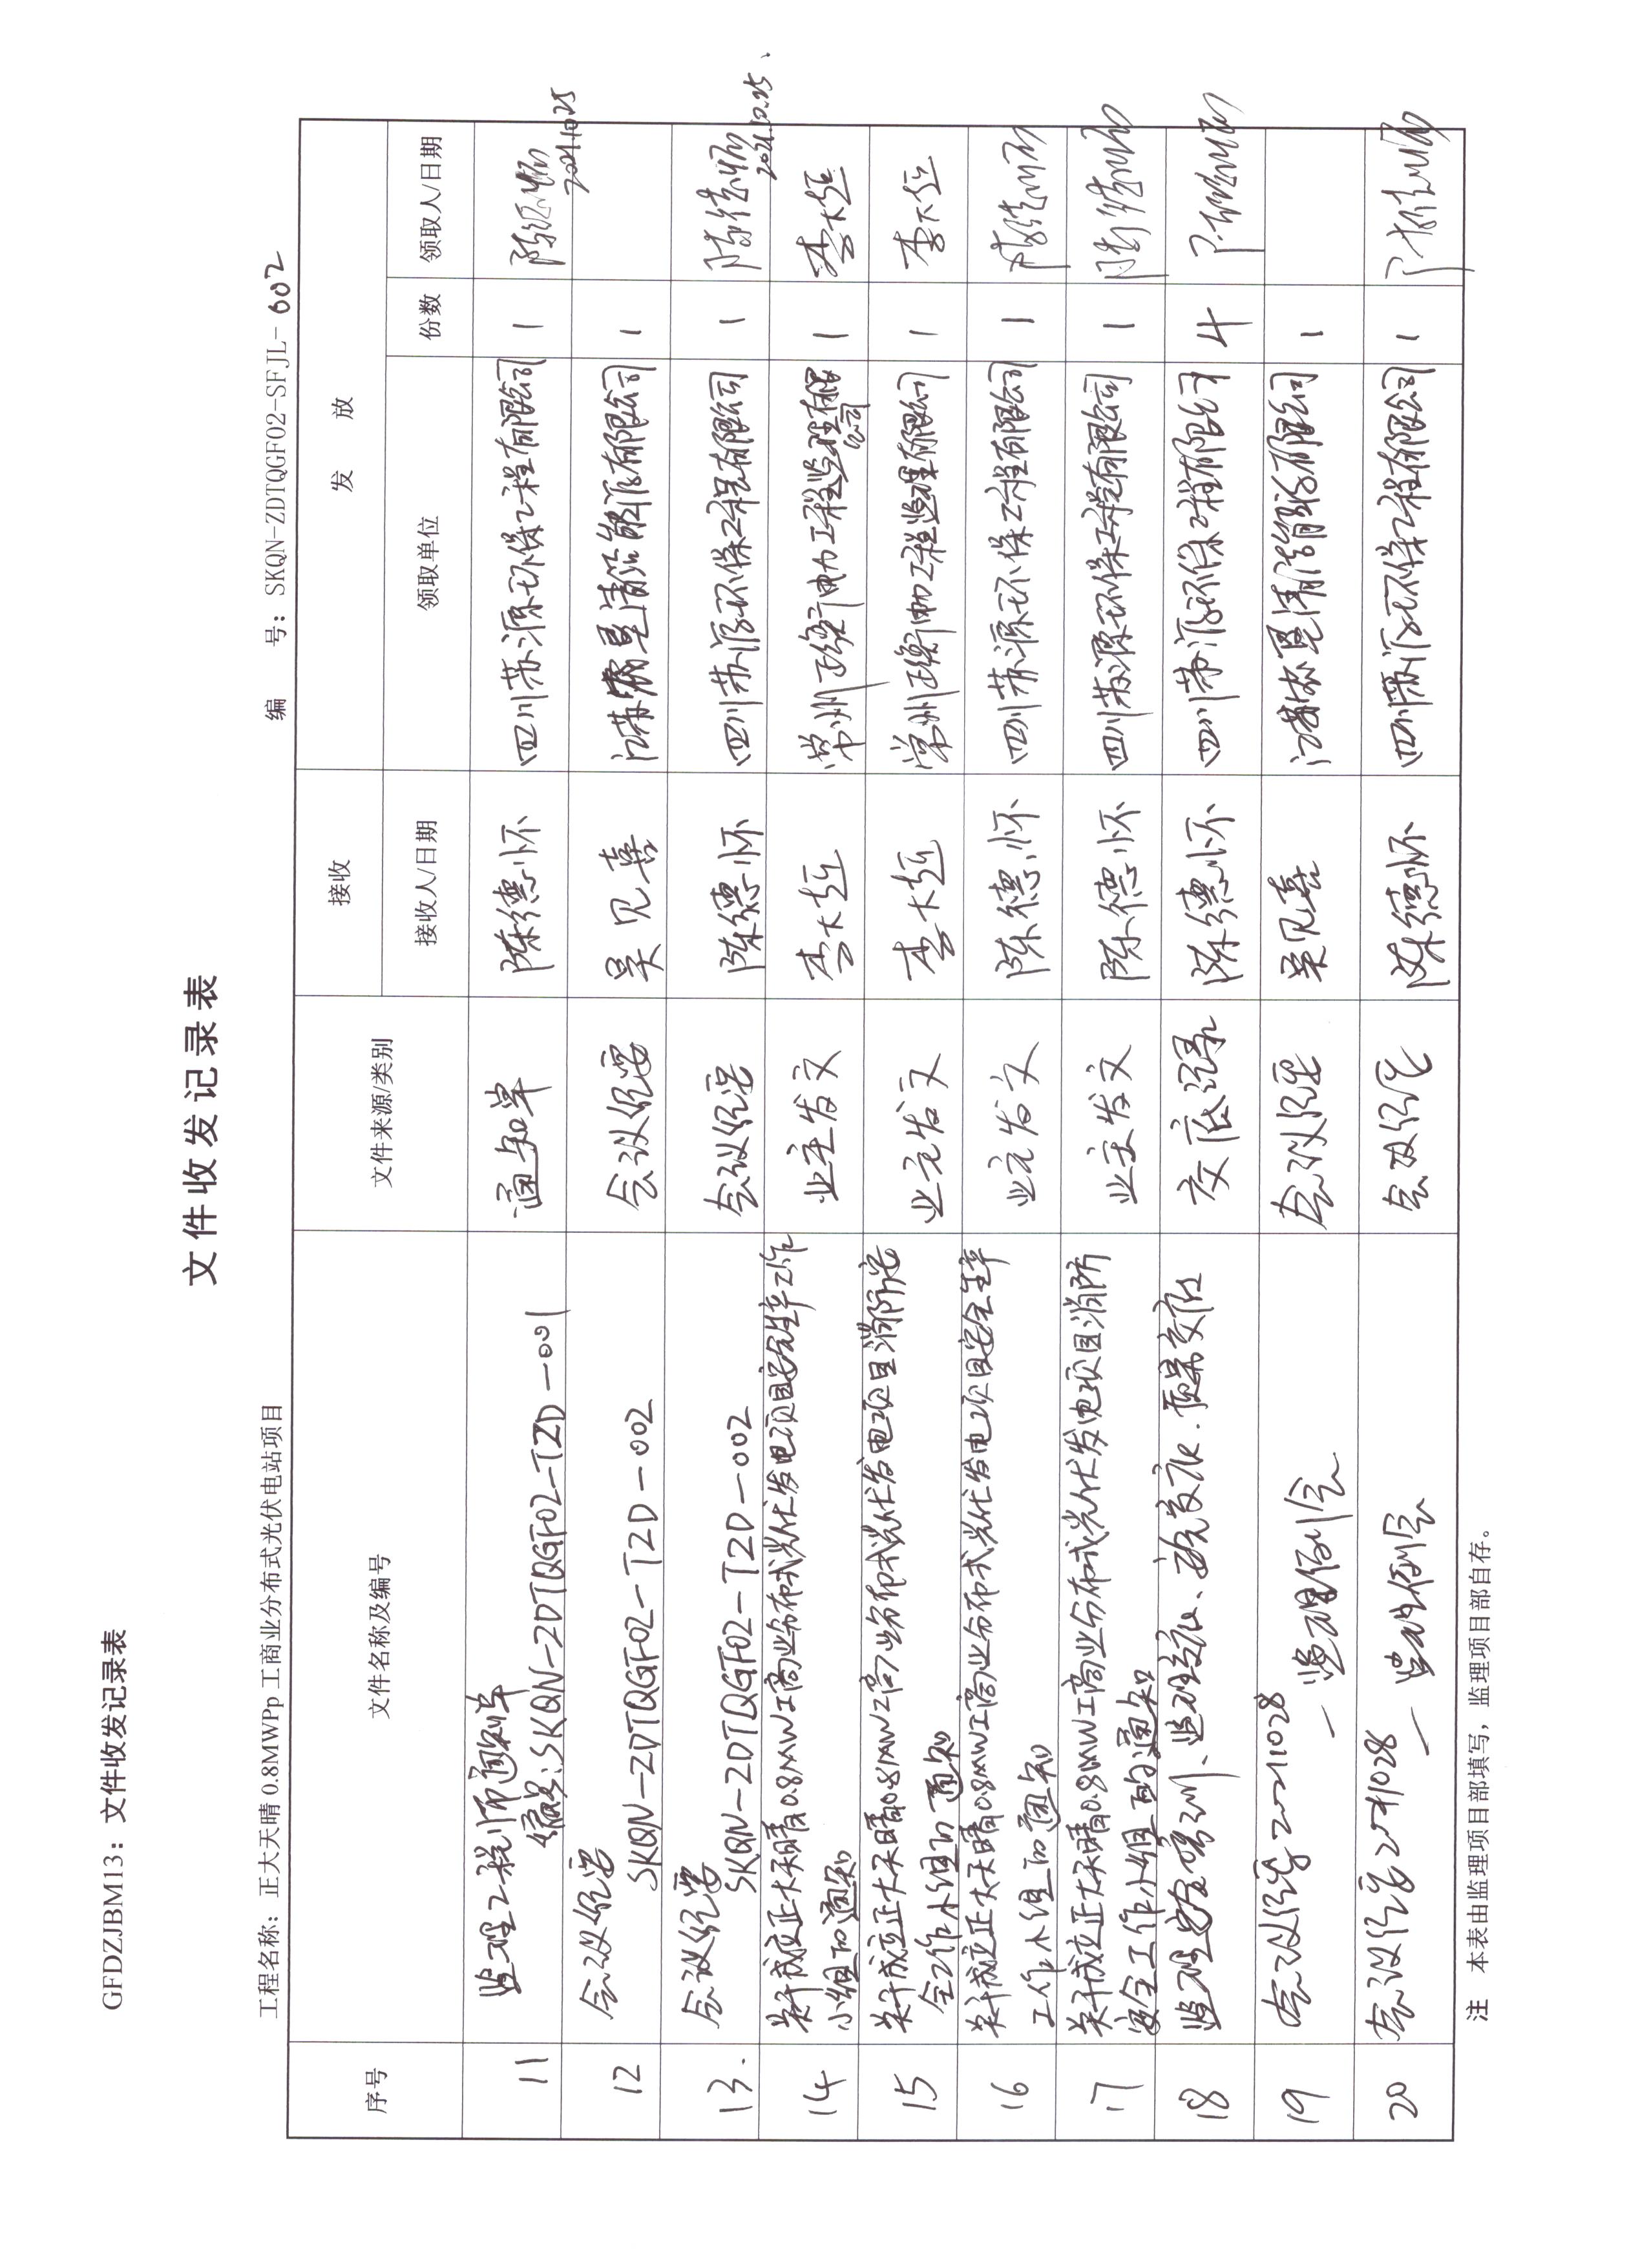 GFDZJBM13：文件收发记录表
文件收发记录表
工程名称：正大天晴 0.8MWPp 工商业分布式光伏电站项目
编 号：SKQN-ZDTQGF02-SFJL-002
序号 文件名称及编号 文件来源/类别 接收 发 放
接收人/日期 领取单位 份数 领取人/日期
11 监理工程师通知单 通知单 陈德怀 四川苏源环保工程有限公司 1
编号：SKQN-ZDTQGF02-TZD-001 2021.10.25
12 会议纪要 会议纪要 吴见喜 江苏宸星清洁能源有限公司 1
SKQN-ZDTQGF02-TZD-002
13. 会议纪要 会议纪要 陈德怀 四川苏源环保工程有限公司 1 陈德怀
SKQN-ZDTQGF02-TZD-002 2021.10.25.
14 关于成立正大天晴0.8MW工商业分布式光伏发电项目安全生产工作 业主发文 李大恒 常州正衡电力工程监理有限公司 1 李大恒
小组的通知
15 关于成立正大天晴0.8MW工商业分布式光伏发电项目消防安 业主发文 李大恒 常州正衡电力工程监理有限公司 1 李大恒
全工作小组的通知
16 关于成立正大天晴0.8MW工商业分布式光伏发电项目安全生产 业主发文 陈德怀 四川苏源环保工程有限公司 1 陈德怀
工作小组的通知
17 关于成立正大天晴0.8MW工商业分布式光伏发电项目消防 业主发文 陈德怀 四川苏源环保工程有限公司 1 陈德怀
安全工作小组的通知
18 监理安全培训、监理交底、 交底、质量交底 交底记录 陈德怀 四川苏源环保工程有限公司 4
19 会议纪要20211028 会议纪要 吴见喜 江苏宸星清洁能源有限公司 1
— 监理例会
20 会议纪要20211028 会议纪要 陈德怀 四川苏源环保工程有限公司 1
— 监理例会
注 本表由监理项目部填写，监理项目部自存。